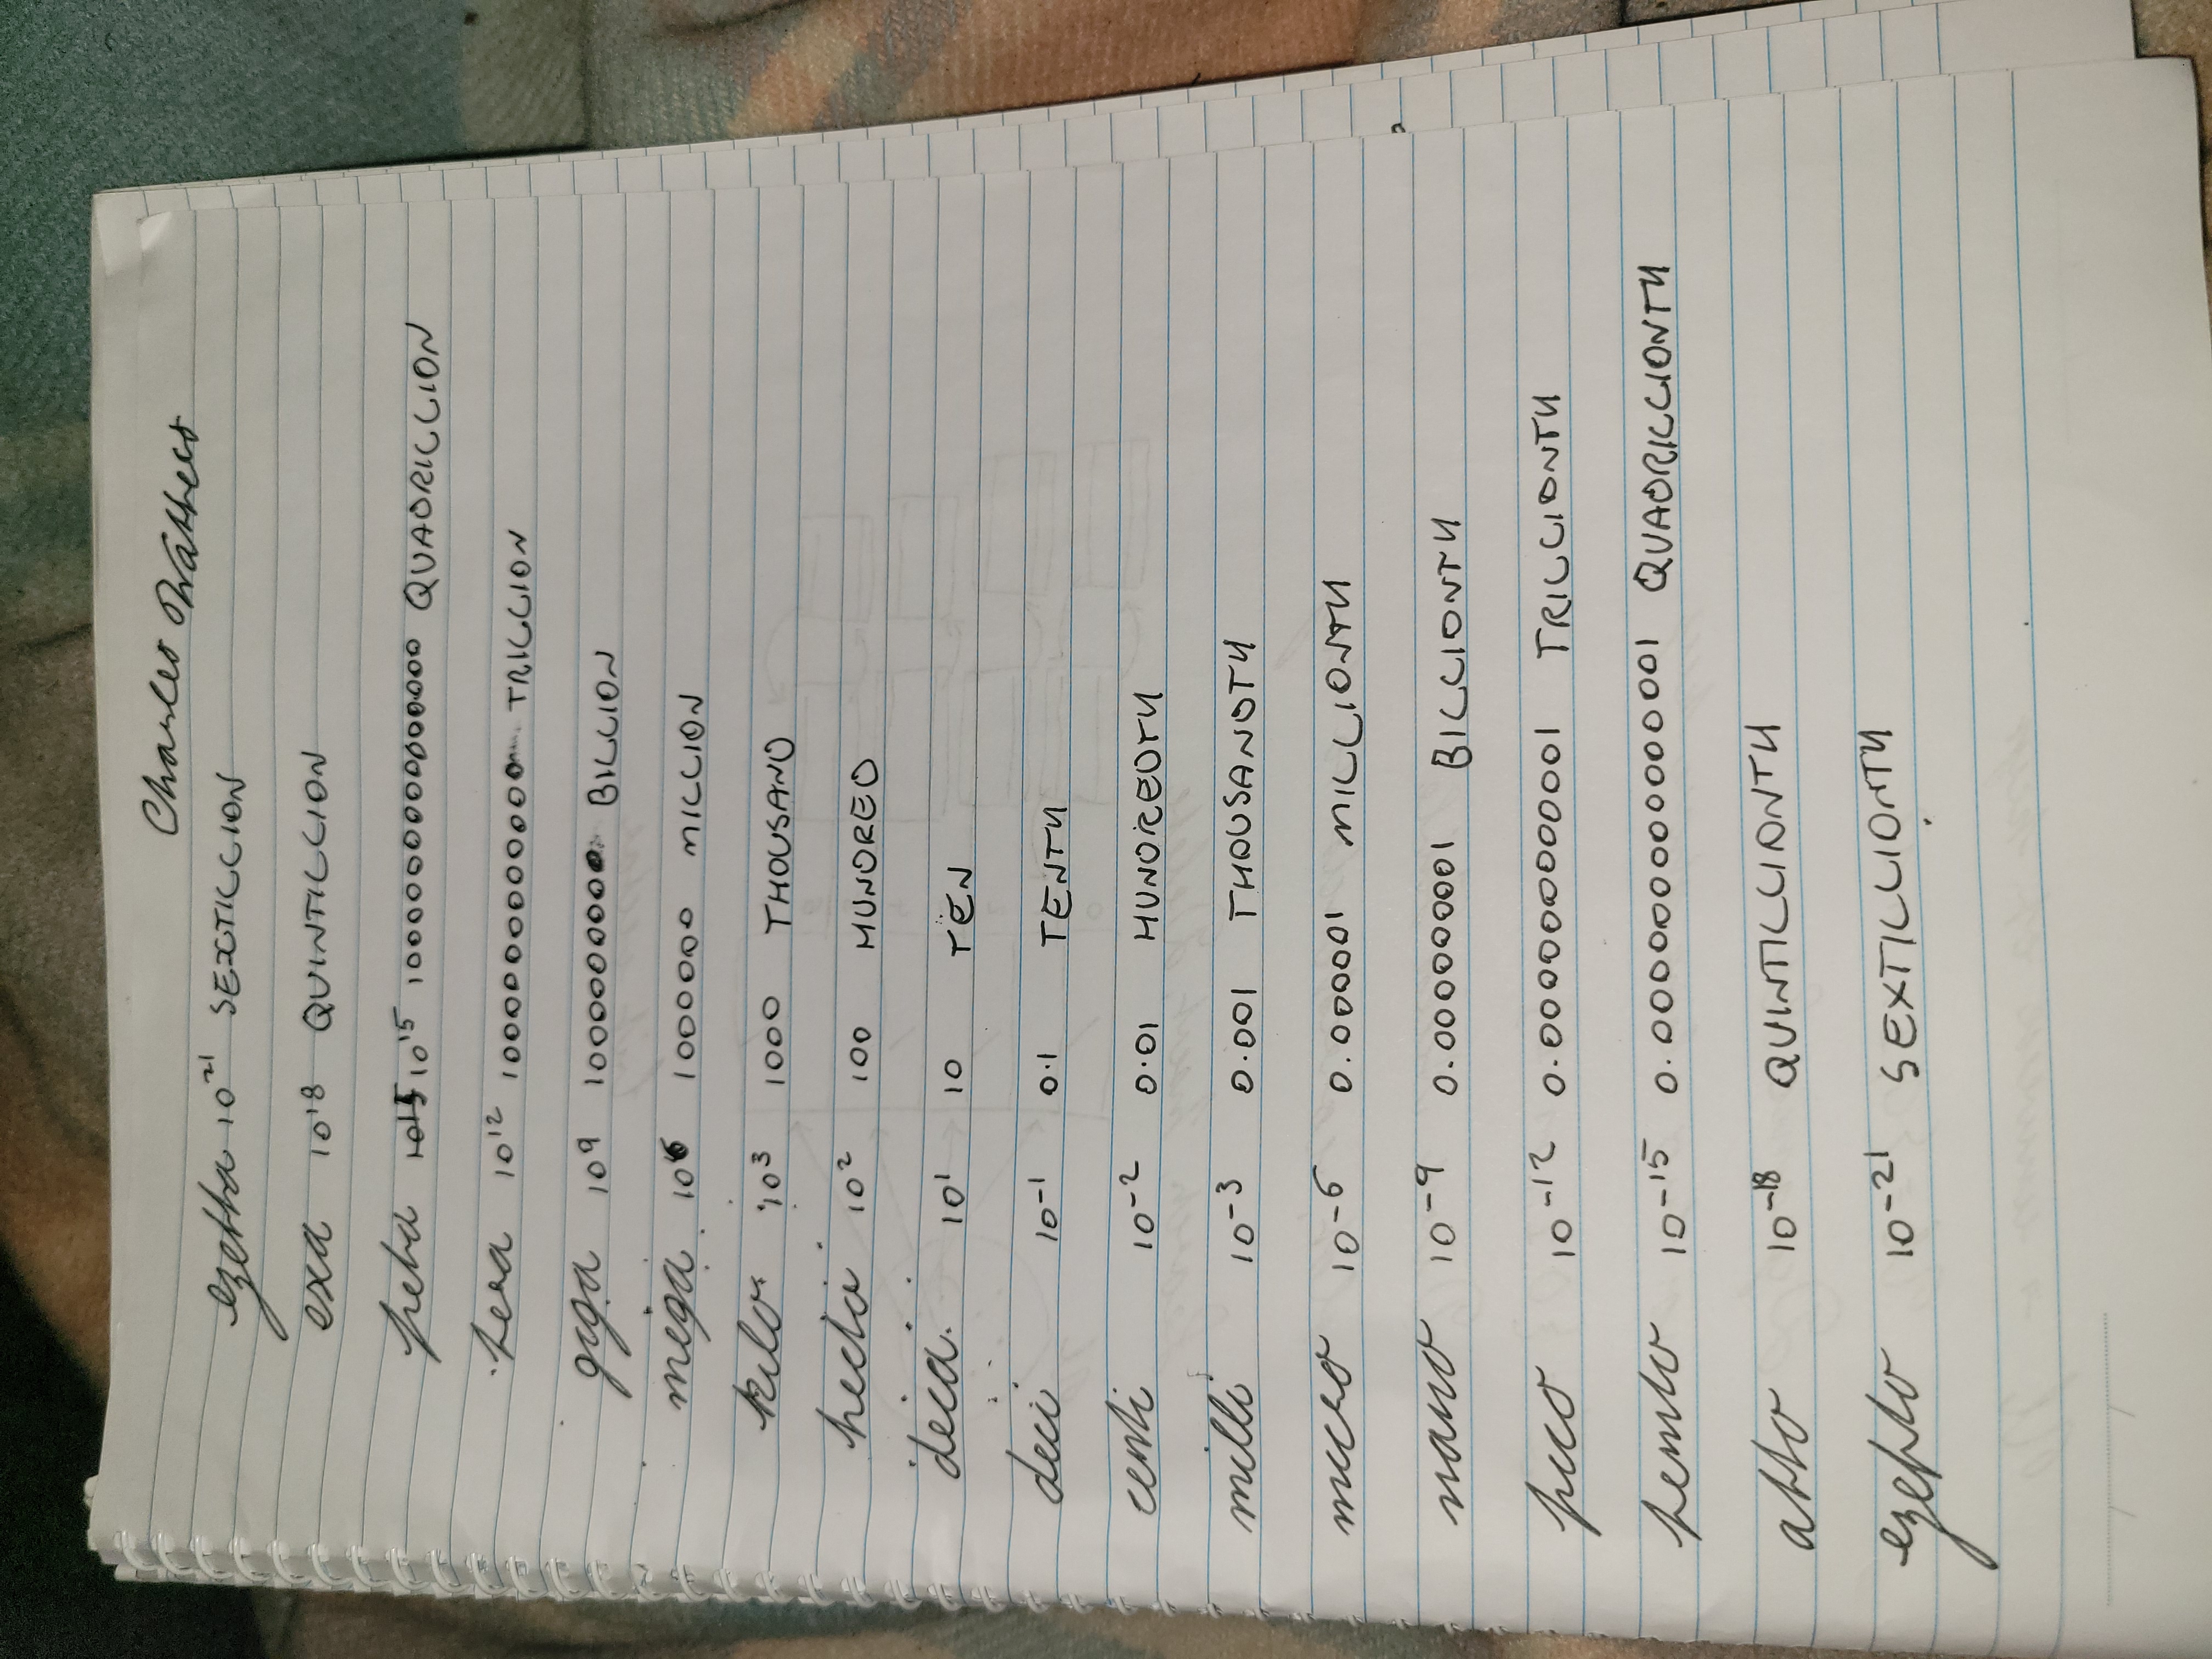 Charles Watters
ezetta 10²¹ SEXTILLION
exa 10¹⁸ QUINTILLION
peta 10¹⁵ 10¹⁵ 1000000000000000 QUADRILLION
tera 10¹² 1000000000000 TRILLION
giga 10⁹ 1000000000 BILLION
mega 10⁶ 1000000 MILLION
kilo 10³ 1000 THOUSAND
hecto 10² 100 HUNDRED
deca 10¹ 10 TEN
deci 10⁻¹ 0.1 TENTH
centi 10⁻² 0.01 HUNDREDTH
milli 10⁻³ 0.001 THOUSANDTH
micro 10⁻⁶ 0.000001 MILLIONTH
nano 10⁻⁹ 0.000000001 BILLIONTH
pico 10⁻¹² 0.000000000001 TRILLIONTH
femto 10⁻¹⁵ 0.000000000000001 QUADRILLIONTH
atto 10⁻¹⁸ QUINTILLIONTH
ezepto 10⁻²¹ SEXTILLIONTH